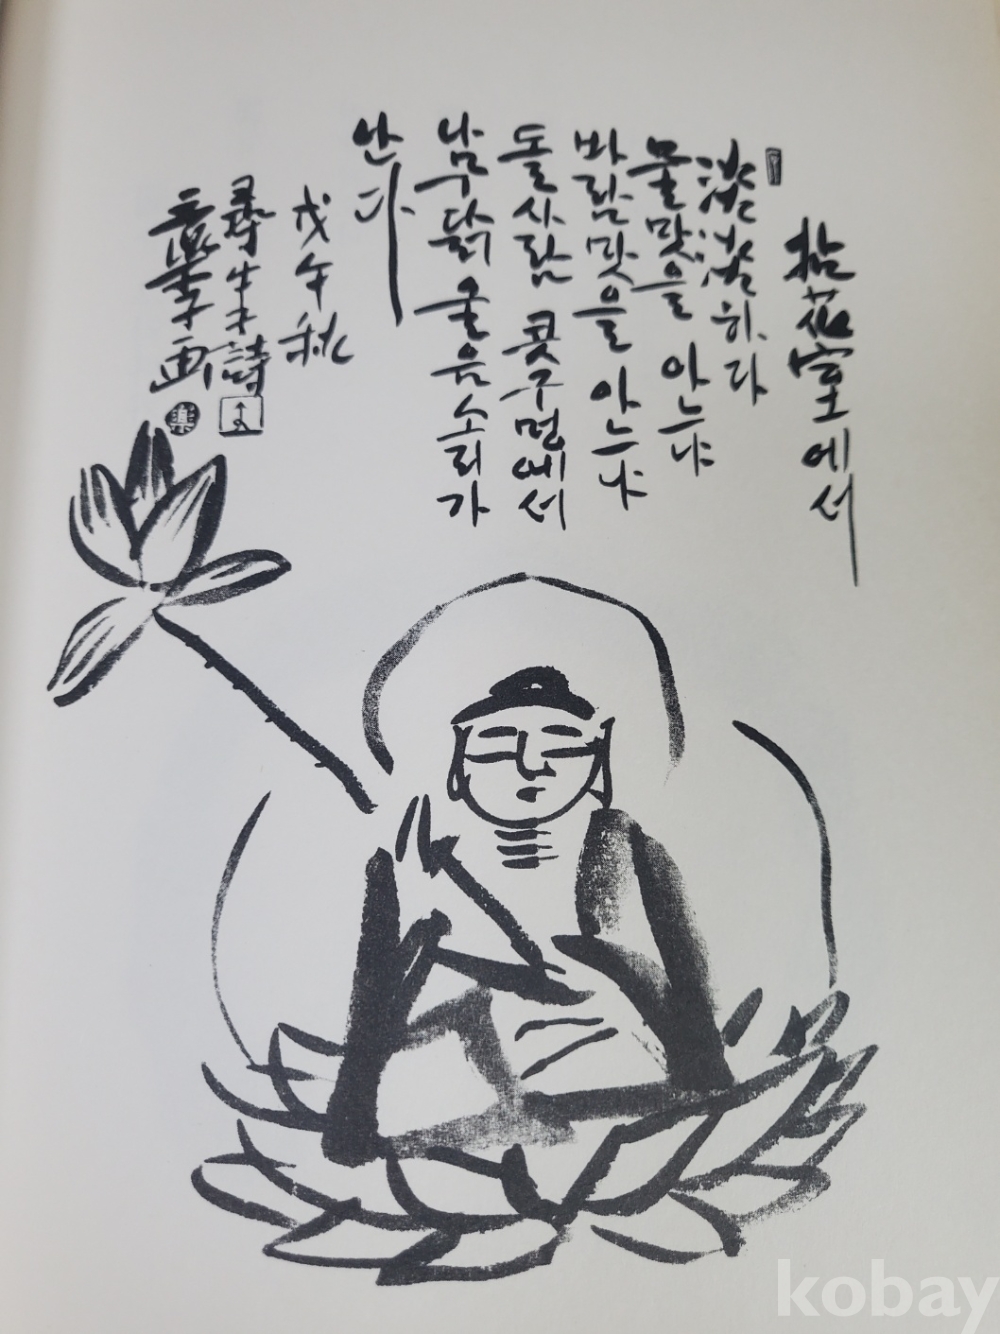 拈花室에서
淡淡하다
물맛을 아느냐
바람맛을 아느냐
돌사람 콧구멍에서
나무닭 울음소리가
난다
戊午秋
尋牛 詩
画
kobay